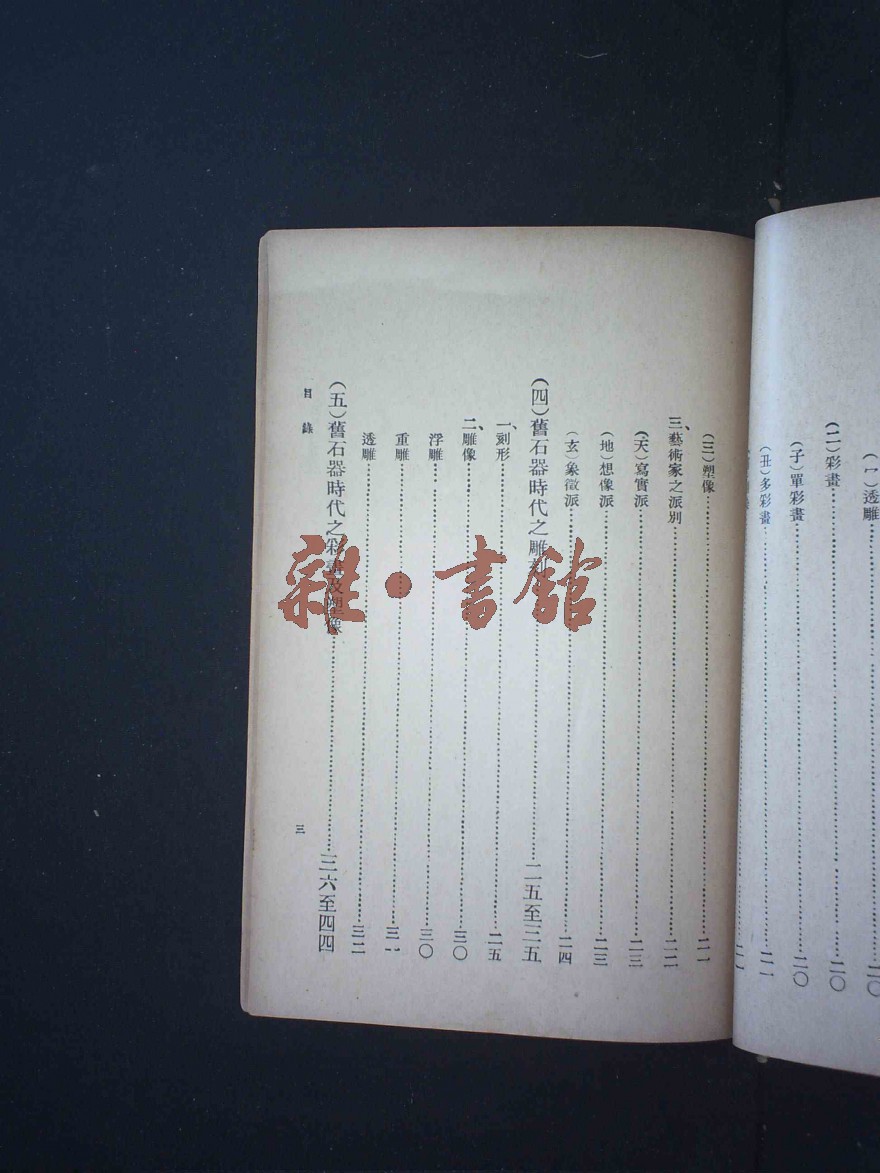 透雕……二〇
(二)彩畫……二〇
(子)單彩畫……二〇
(丑)多彩畫……二一
(三)塑像……二一
三、藝術家之派別……二二
(天)寫實派……二三
(地)想像派……二三
(玄)象徵派……二四
(四)舊石器時代之雕刻……二五至三五
一、刻形……二五
二、雕像……三〇
浮雕……三〇
重雕……三一
透雕……三二
(五)舊石器時代之彩畫及塑像……三六至四四
目錄
三
雜·書館